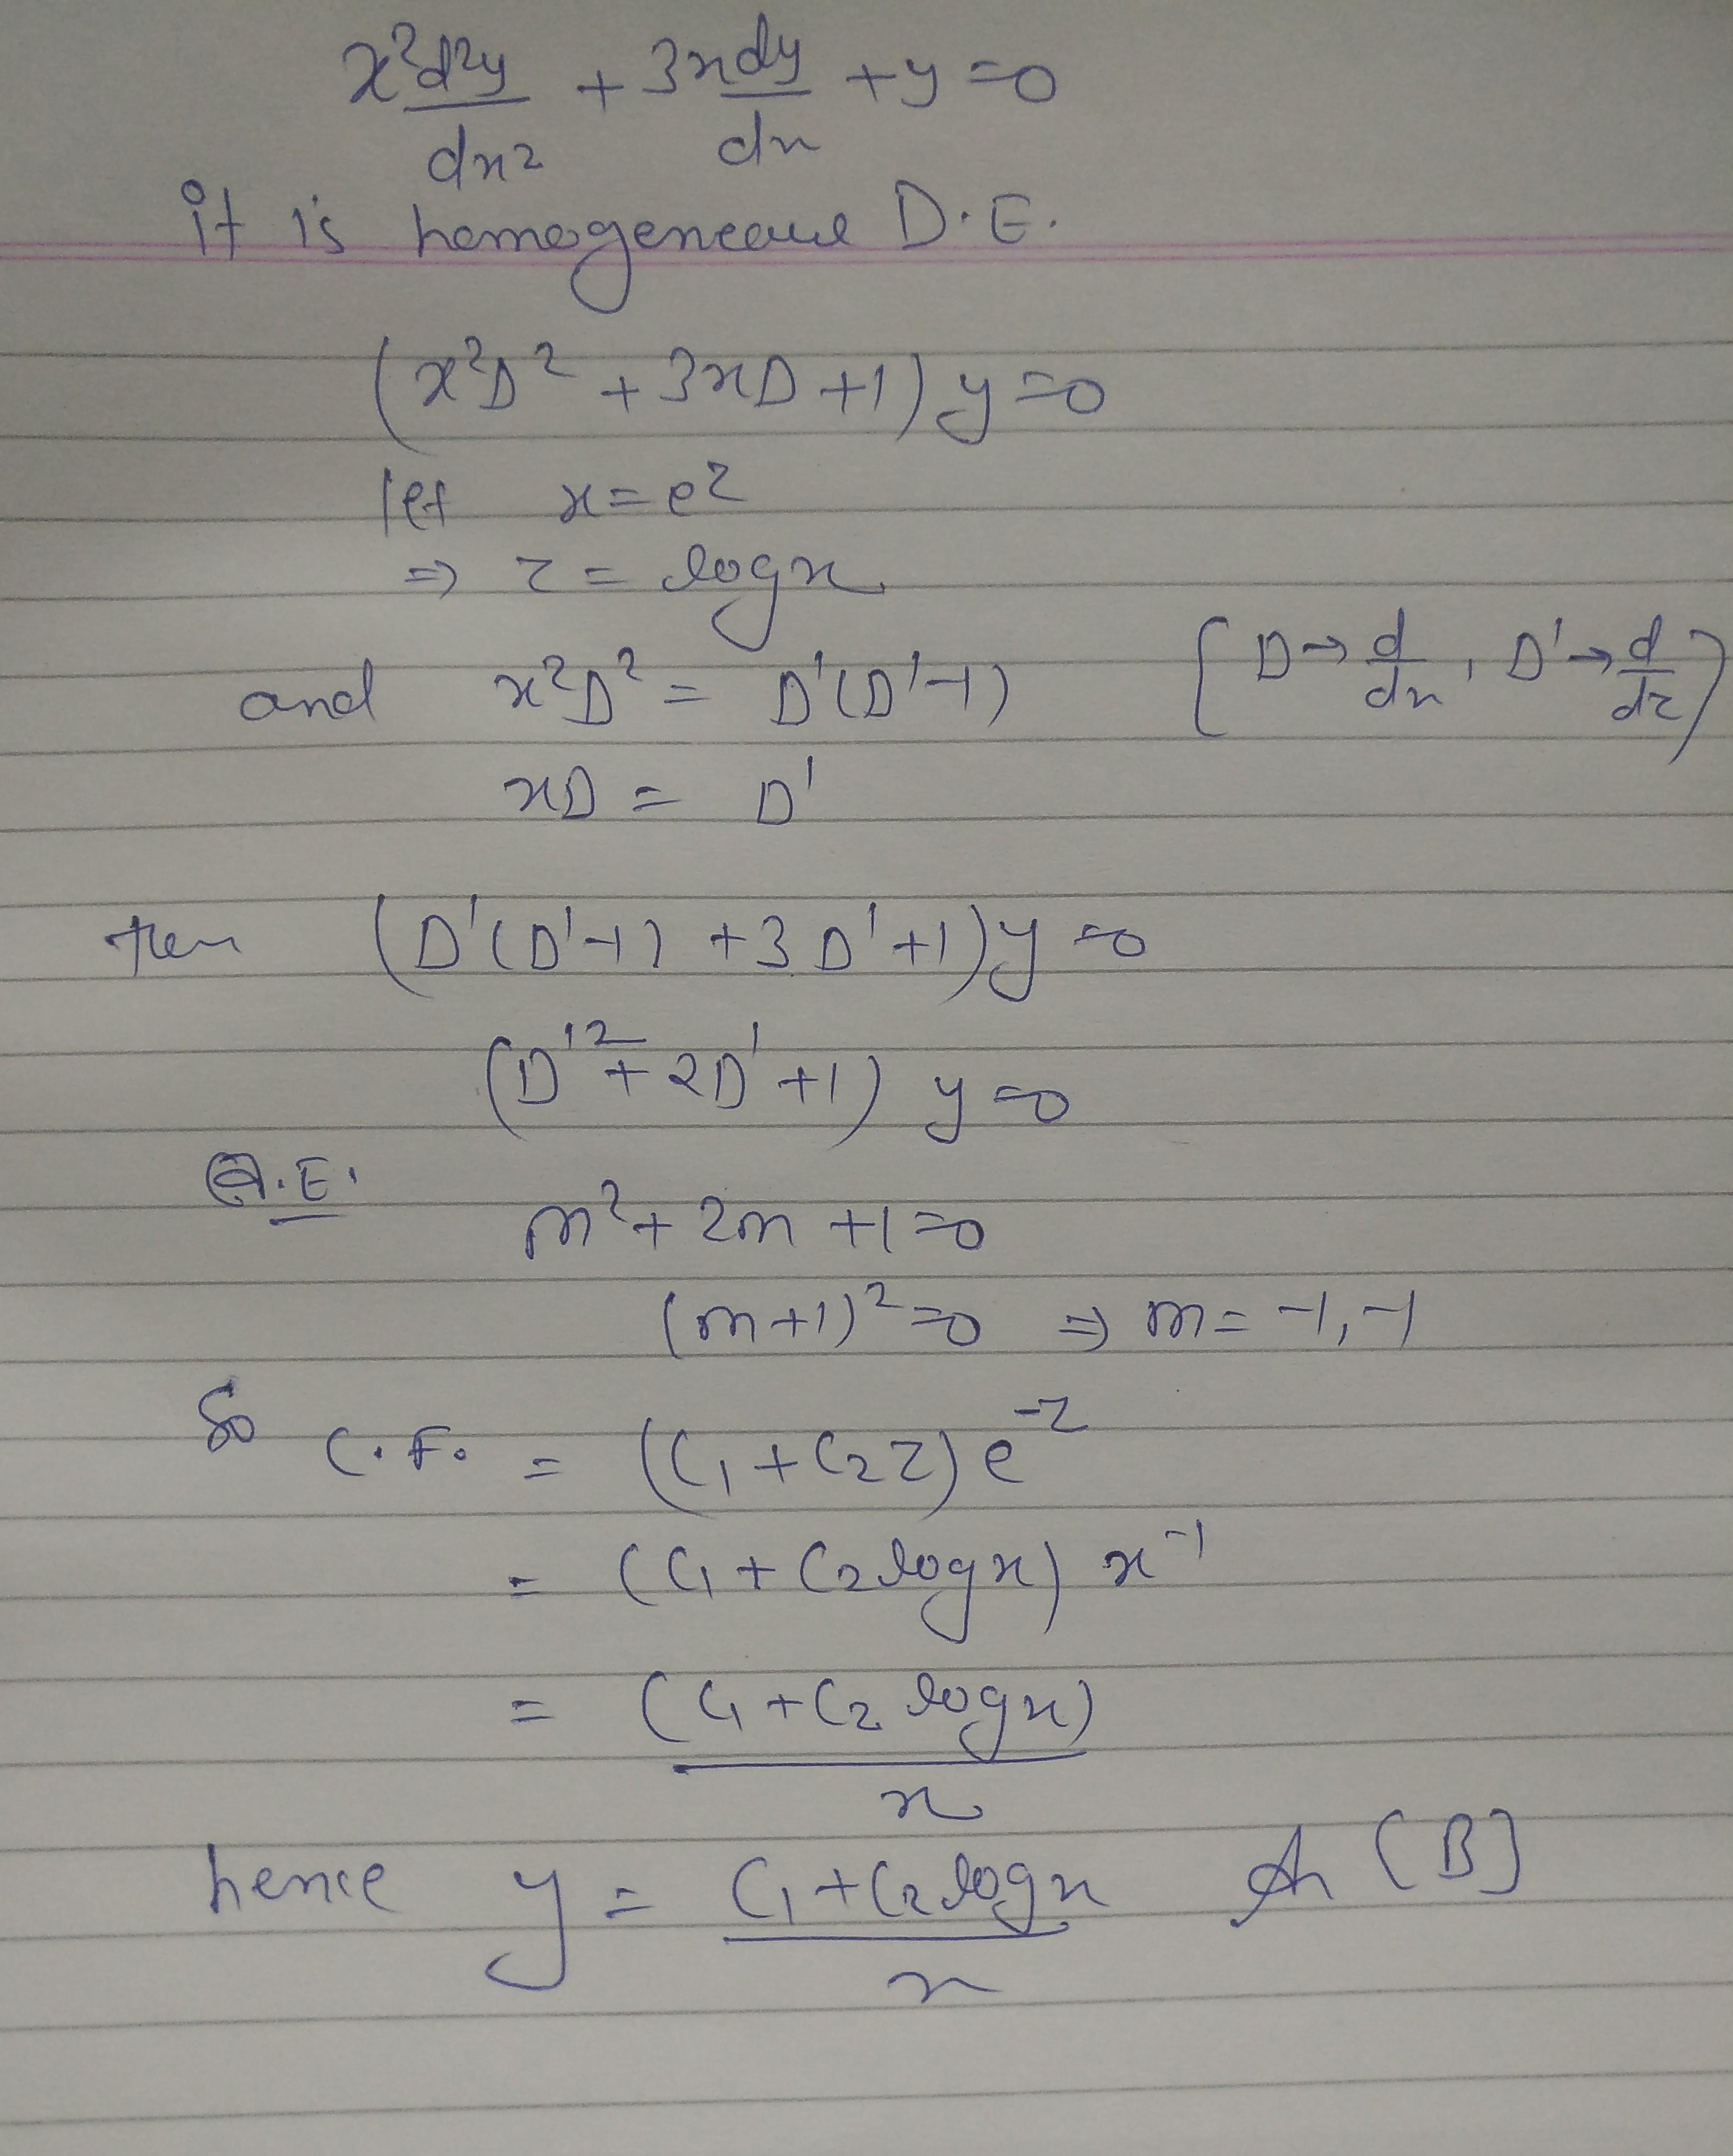 x²d²y/dx² + 3x dy/dx + y = 0
it is homogeneous D.E.
(x²D² + 3xD + 1) y = 0
let x = e^z
⇒ z = log x
and x²D² = D'(D'-1) [D → d/dx, D' → d/dz]
xD = D'
then (D'(D'-1) + 3D' + 1) y = 0
(D'² + 2D' + 1) y = 0
A.E.
m² + 2m + 1 = 0
(m+1)² = 0 ⇒ m = -1, -1
So C.F. = (C₁ + C₂z) e^-z
= (C₁ + C₂ log x) x^-1
= (C₁ + C₂ log x)/x
hence y = C₁ + C₂ log x/x A [B]